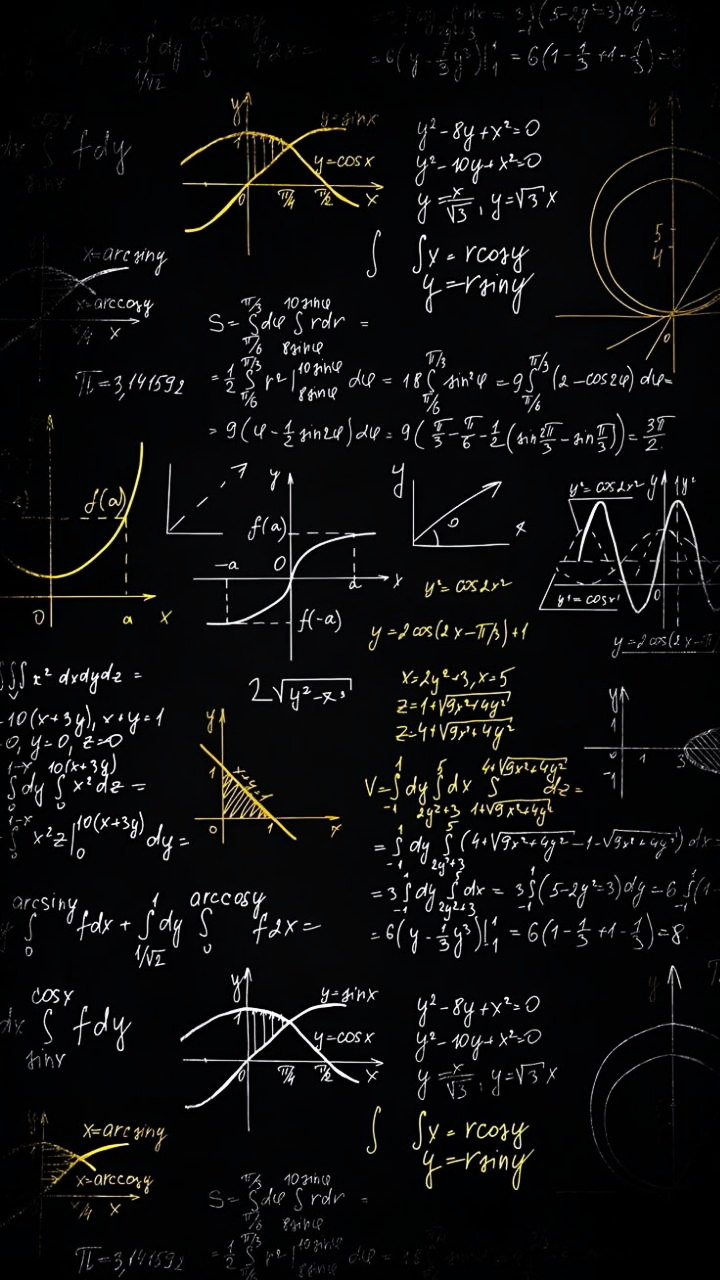 = 6(y - 1/3 y³)|¹₁ = 6(1 - 1/3 + 1 - 1/3) = 8
∫ fdy
y
y=sinx
1
y=cosx
0 π/4 π/2 x
y²-8y+x²=0
y²-10y+x²=0
y = x/√3, y=√3 x
∫x = rcosy
y = rsiny
5
4
0
x=arcsiny
x=arccosy
π/4 x
π=3,141592
S = ∫_{π/6}^{π/3} dφ ∫_{8sinφ}^{10sinφ} rdr =
= 1/2 ∫_{π/6}^{π/3} r²|_{8sinφ}^{10sinφ} dφ = 18 ∫_{π/6}^{π/3} sin²φ = 9 ∫_{π/6}^{π/3} (2-cos2φ) dφ=
= 9(φ - 1/2 sin2φ) dφ = 9(π/3 - π/6 - 1/2(sin 2π/3 - sin π/3)) = 3π/2
f(a)
0 a x
y
f(a)
-a 0 a x
f(-a)
y
x
y²=cos2x² y 1 y²
y²=cos2x²
y=2cos(2x-π/3)+1
y=2cos(2x-π
∫∫∫ x² dxdydz =
10(x+3y), x+y=1
0, y=0, z=0
1-x 10(x+3y)
∫dy ∫ x²dz =
0 0
∫_0^{1-x} x²z|_0^{10(x+3y)} dy=
2√(y²-x³)
y
1
x+y=1
0 1 x
x=2y²+3, x=5
z=1+√(9x²+4y²)
z=4+√(9x²+4y²)
V=∫_{-1}^{1} dy ∫_{2y²+3}^{5} dx ∫_{1+√(9x²+4y²)}^{4+√(9x²+4y²)} dz=
= ∫_{-1}^{1} dy ∫_{2y²+3}^{5} (4+√(9x²+4y²) - 1 - √(9x²+4y²)) dx=
= 3 ∫_{-1}^{1} dy ∫_{2y²+3}^{5} dx = 3 ∫_{-1}^{1} (5-2y²=3) dy = 6 ∫_{-1}^{1} (1-
= 6(y - 1/3 y³)|¹₁ = 6(1 - 1/3 + 1 - 1/3) = 8
y
1
1 3
-1
arcsiny 1 arccosy
∫ fdx + ∫ dy ∫ f2x =
0 1/√2 0
cosx
dx ∫ fdy
sinx
y
y=sinx
1
y=cosx
0 π/4 π/2 x
y²-8y+x²=0
y²-10y+x²=0
y = x/√3, y=√3 x
∫ ∫x = rcosy
y = rsiny
y
x=arcsiny
x=arccosy
π/4 x
S = ∫_{π/6}^{π/3} dφ ∫_{8sinφ}^{10sinφ} rdr =
π=3,141592